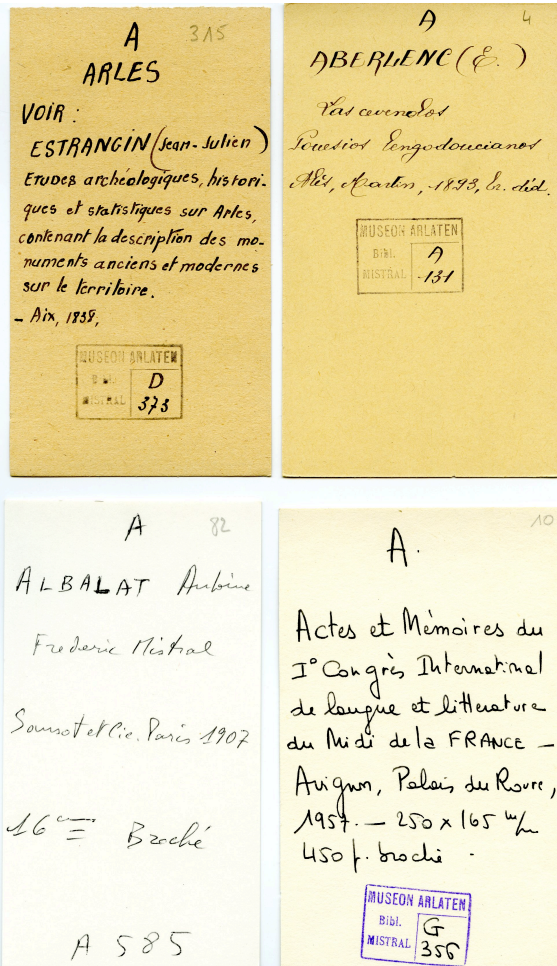 A 315
ARLES
VOIR :
ESTRANGIN (Jean-Julien)
ETUDES archéologiques, histori-
ques et statistiques sur Arles,
contenant la description des mo-
numents anciens et modernes
sur le territoire.
- Aix, 1838,
MUSEON ARLATEN
Bibl. D
MISTRAL 373
A 4
ABERLENC (E.)
Las cevenolos
Pouesios lengodoucianos
Alès, Martin, 1893, Ex. déd.
MUSEON ARLATEN
Bibl. A
MISTRAL 131
A 82
ALBALAT Antoine
Frederic Mistral
Sansot et Cie. Paris 1907
16 Broché
A 585
10
A.
Actes et Mémoires du
I° Congrès International
de langue et litterature
du Midi de la FRANCE —
Avignon, Palais du Roure,
1957. — 250 x 165 m/m
450 p. broché .
MUSEON ARLATEN
Bibl. G
MISTRAL 356